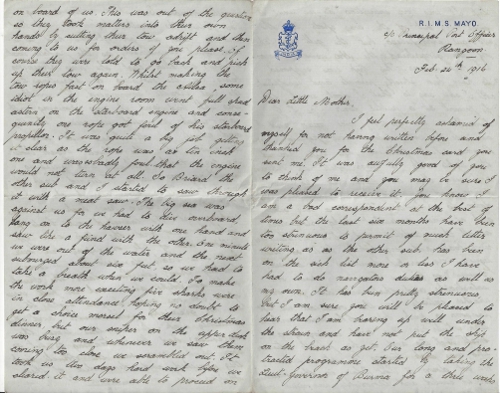 R.I.M.S. MAYO.
c/o Principal Port Officer
Rangoon
Feb. 20th 1916
Dear Little Mother,
I feel perfectly ashamed of
myself for not having written before and
thanked you for the Christmas card you
sent me. It was awfully good of you
to think of me and you may be sure I
was pleased to receive it. You know I
am a bad correspondent at the best of
times but the last six months have been
too strenuous to permit of much letter
writing as as the other sub has been
on the sick list more or less I have
had to do navigators duties as well as
my own. It has been pretty strenuous
but I am sure you will be pleased to
hear that I am bearing up well under
the strain and have not put the ship
on the beach as yet. Our long and pro-
tracted programme started by taking the
Lieut-Governor of Burma for a three weeks
on board of us. This was out of the question
so they took matters into their own
hands by cutting their tow adrift and then
coming to us for orders if you please. Of
course they were told to go back and pick
up their tow again. Whilst making the
tow ropes fast on board the some
idiot in the engine room went full speed
astern on the starboard engine and conse-
quently one rope got foul of his starboard
propellor. It was quite a big job getting
it clear as the rope was a six inch
one and was so badly foul that the engine
would not turn at all. So the
other sub and I started to saw through
it with a meat saw. The big sea was
against us for we had to dive overboard,
hang on to the hawser with one hand and
saw like a fiend with the other. One minute
we were out of the water and the next
submerged about six feet, so we had to
take a breath when we could. To make
the work more exciting five sharks were
in close attendance hoping no doubt to
get a choice morsel for their Christmas
dinner but our sniper on the upper deck
was busy and whenever we saw them
coming too close we scrambled out. It
took us two days hard work before we
cleared it and were able to proceed on